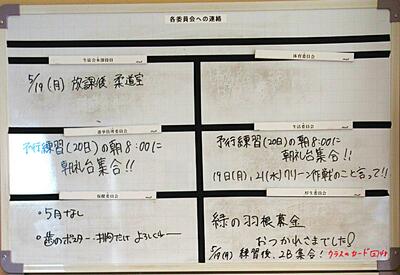 各委員会への連絡
生徒会本部役員
5/19(月) 放課後 柔道室
体育委員会
選挙管理委員会
予行練習(20日)の朝8:00に
朝礼台集合!!
生活委員会
予行練習(20日)の朝8:00に
朝礼台集合!!
19日(月)、21(水)クリーン作戦のこと言って!!
保健委員会
・5月なし
・歯のポスター
よろしくー
厚生委員会
緑の羽根募金
おつかれさまでした
5/19(月) 練習後、2B集合!
クラスのカード